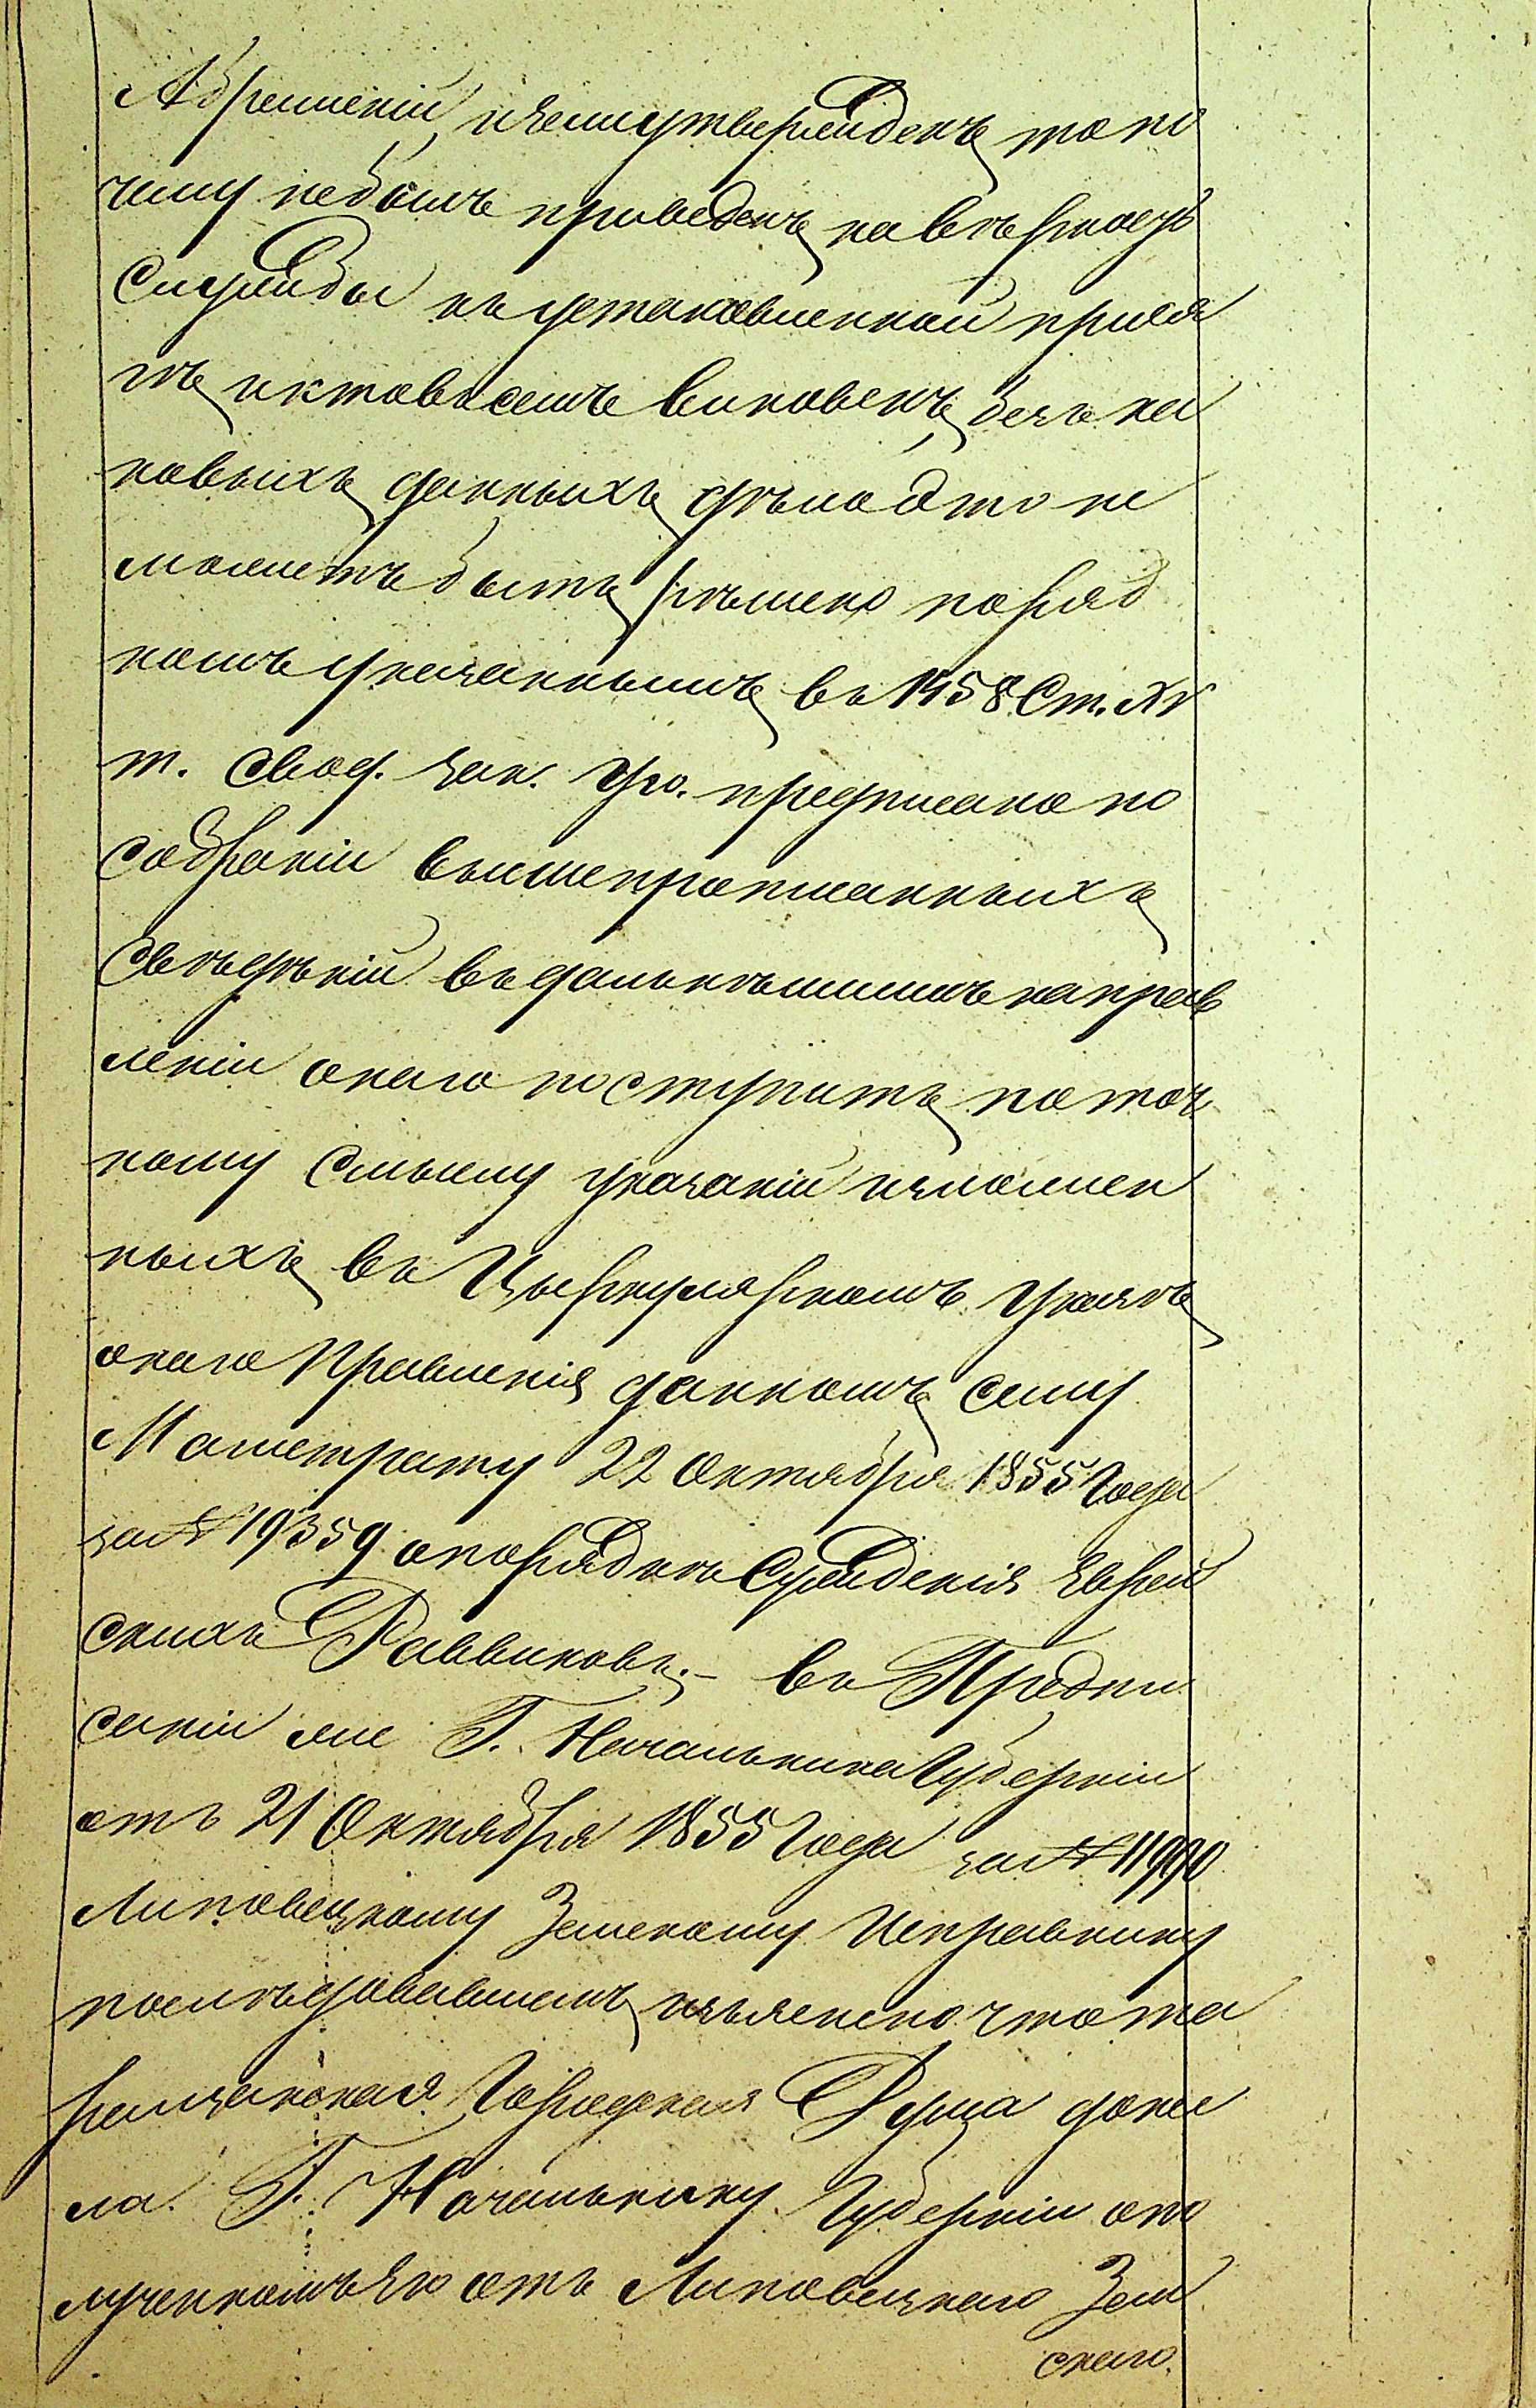 Абрамскій, и если утвержденъ то по
чему небылъ приведенъ на вѣрность
службы къ установленной прися
гѣ, и кто въ семъ виновенъ, безъ ка
ковыхъ данныхъ, дѣло это не
можетъ быть рѣшено поряд
комъ указаннымъ въ 1458 Ст. XV
т. свод. зак. уго. предписано по
собраніи вышепрописанныхъ
свѣдѣній въ дальнѣйшемъ направ
леніи онаго поступить по точ
ному смыслу указаній изложен
ныхъ въ Циркулярномъ Указѣ
онаго Правленія данномъ сему
Магистрату 22 Октября 1855 года
за № 19359 о порядкѣ сужденія Еврей
скихъ Раввиновъ. – въ Предпи
саніи же Г. Начальника Губерніи
отъ 21 Октября 1855 года за № 11990
Липовецкому Земскому Исправнику
послѣдовавшемъ, изъяснено что та
ращанская Городская Дума донес
ла Г. Начальнику Губерніи о по
лученномъ Ею отъ Липовецкаго Зем
скаго.